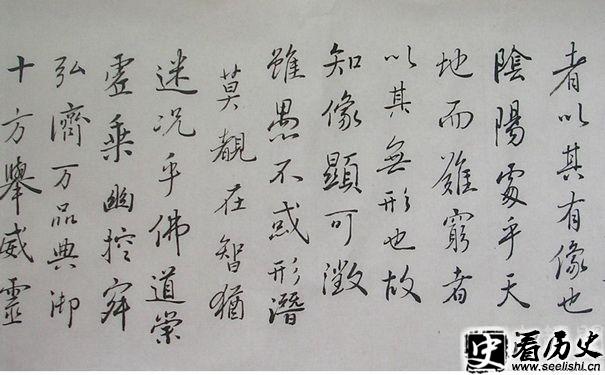 者以其有像也
陰陽處乎天
地而難窮者
以其無形也故
知像顯可徵
雖愚不惑形潛
莫覩在智猶
迷况乎佛道崇
虛乘幽控寂
弘濟万品典御
十方舉威靈
史 看历史
www.seelishi.cn